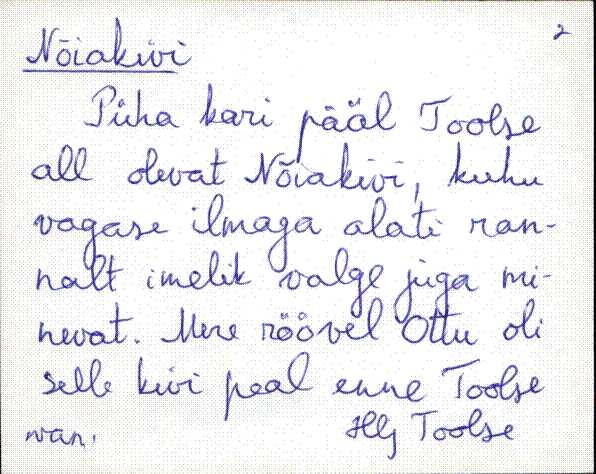 2
Nõiakivi
Püha kari pääl Toolse
all olevat Nõiakivi, kuhu
vagase ilmaga alati ran-
nalt imelik valge juga mi-
nevat. Mere röövel Ottu oli
selle kivi peal enne Toolse
Hlj Toolse